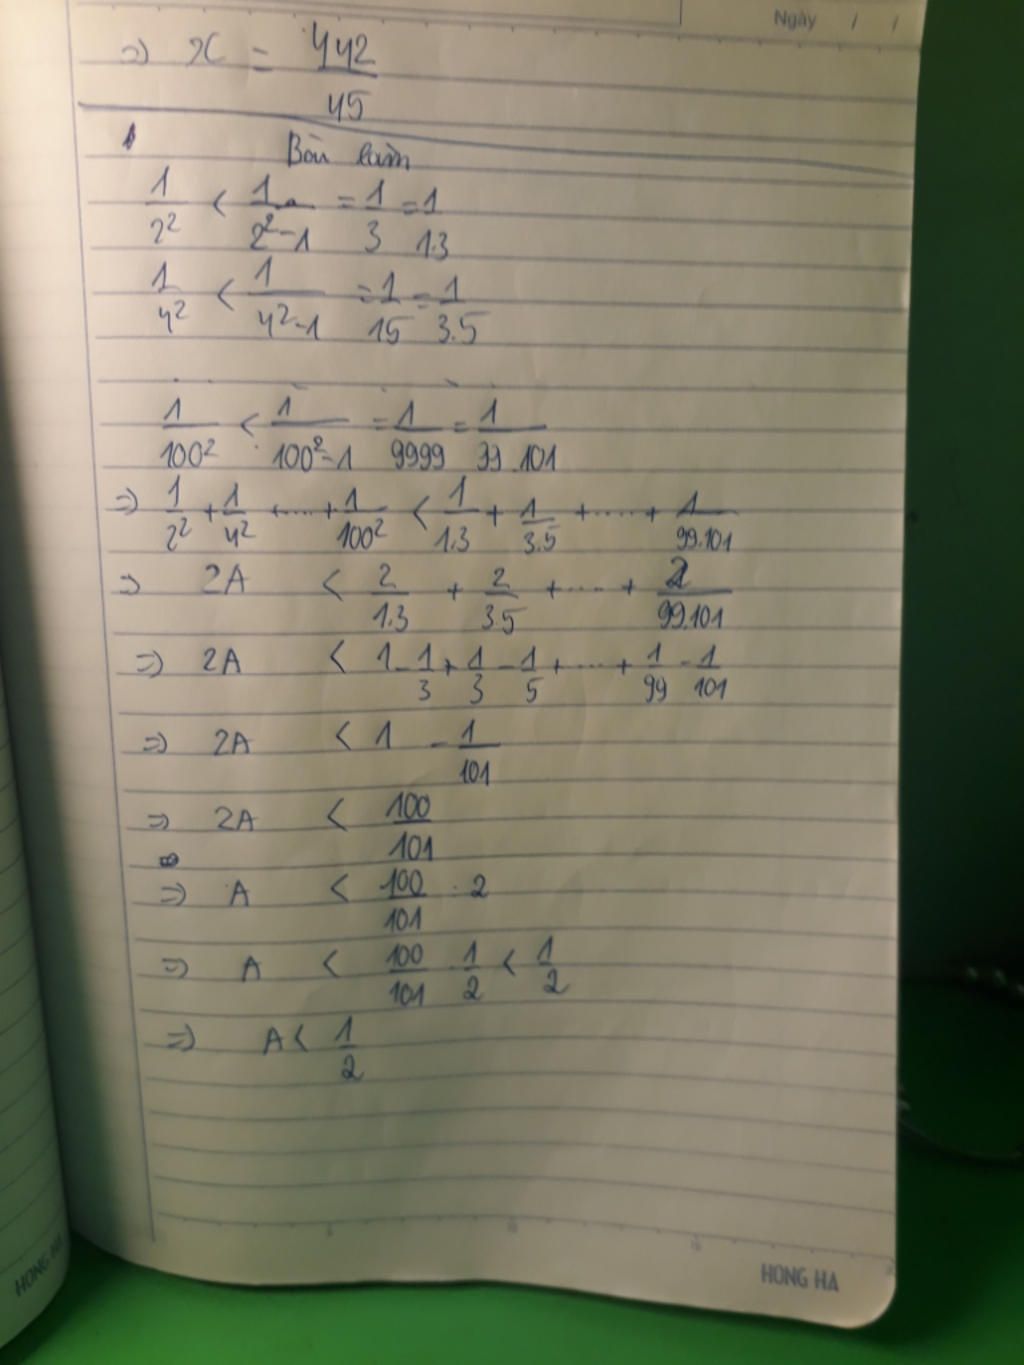 Ngày / /
=) x = 442/45
Bài làm
1/2² < 1/2²-1 = 1/3 = 1/1.3
1/4² < 1/4²-1 = 1/15 = 1/3.5
1/100² < 1/100²-1 = 1/9999 = 1/99.101
=) 1/2² + 1/4² +....+ 1/100² < 1/1.3 + 1/3.5 +.....+ 1/99.101
=) 2A < 2/1.3 + 2/3.5 +.....+ 2/99.101
=) 2A < 1 - 1/3 + 1/3 - 1/5 +....+ 1/99 - 1/101
=) 2A < 1 - 1/101
=) 2A < 100/101
=) A < 100/101 . 2
=) A < 100/101 . 1/2 < 1/2
=) A < 1/2
5 10 15
HONG HA
HONG HA